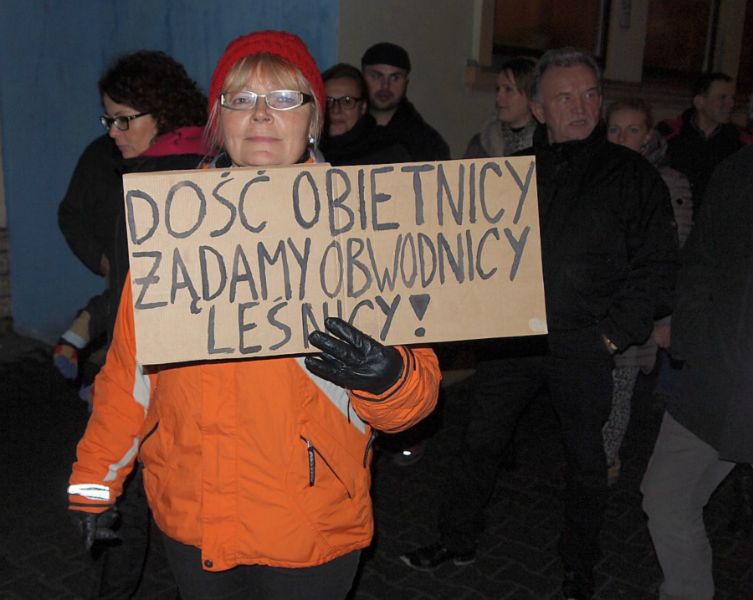 DOŚĆ OBIETNICY
ŻĄDAMY OBWODNICY
LEŚNICY!